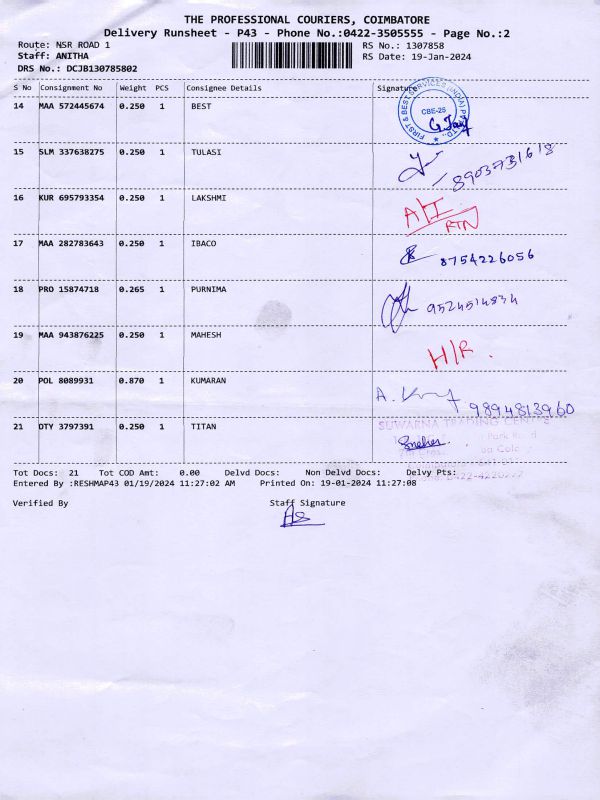 THE PROFESSIONAL COURIERS, COIMBATORE
Delivery Runsheet - P43 - Phone No.:0422-3505555 - Page No.:2
Route: NSR ROAD 1 RS No.: 1307858
Staff: ANITHA RS Date: 19-Jan-2024
DRS No.: DCJB130785802
S No Consignment No Weight PCS Consignee Details Signature
14 MAA 572445674 0.250 1 BEST
FIRST & BEST SERVICES (INDIA) PVT. LTD.,
CBE-25
15 SLM 337638275 0.250 1 TULASI
8903731618
16 KUR 695793354 0.250 1 LAKSHMI A/I
RTN
17 MAA 282783643 0.250 1 IBACO 8754226056
18 PRO 15874718 0.265 1 PURNIMA 9524514834
19 MAA 943876225 0.250 1 MAHESH
H/R.
20 POL 8089931 0.870 1 KUMARAN
9894813960
21 DTY 3797391 0.250 1 TITAN SUWARNA TRADING CENTRE
Park Road
Tot Docs: 21 Tot COD Amt: 0.00 Delvd Docs: Non Delvd Docs: Delvy Pts:
Entered By :RESHMAP43 01/19/2024 11:27:02 AM Printed On: 19-01-2024 11:27:08
Verified By Staff Signature